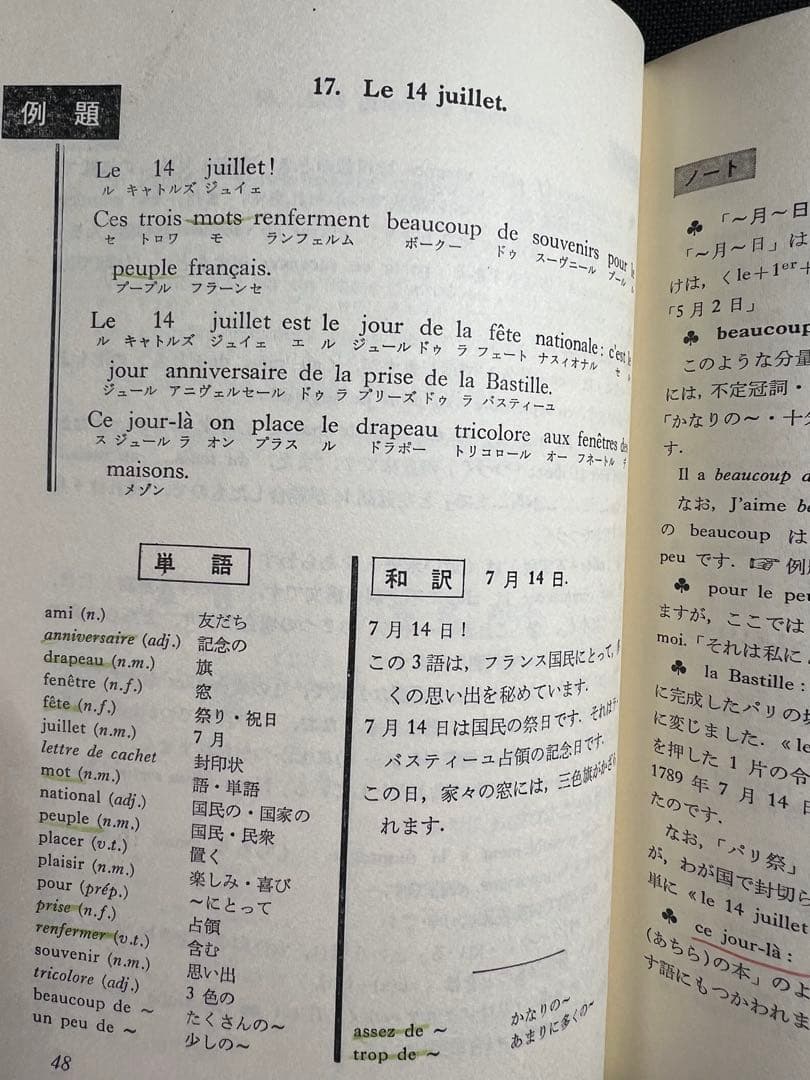 17. Le 14 juillet.
例題
Le 14 juillet!
ル キャトルズ ジュイェ
Ces trois mots renferment beaucoup de souvenirs pour le
セ トロワ モ ランフェルム ボークー ドゥ スーヴニール プール ル
peuple français.
プープル フラーンセ
Le 14 juillet est le jour de la fête nationale: c'est le
ル キャトルズ ジュイェ エ ル ジュール ドゥ ラ フェート ナスィオナル セ ル
jour anniversaire de la prise de la Bastille.
ジュール アニヴェルセール ドゥ ラ プリーズ ドゥ ラ バスティーユ
Ce jour-là on place le drapeau tricolore aux fenêtres des
ス ジュール ラ オン プラス ル ドラポー トリコロール オー フネートル デ
maisons.
メゾン
単語
ami (n.) 友だち
anniversaire (adj.) 記念の
drapeau (n.m.) 旗
fenêtre (n.f.) 窓
fête (n.f.) 祭り・祝日
juillet (n.m.) 7月
lettre de cachet 封印状
mot (n.m.) 語・単語
national (adj.) 国民の・国家の
peuple (n.m.) 国民・民衆
placer (v.t.) 置く
plaisir (n.m.) 楽しみ・喜び
pour (prép.) ～にとって
prise (n.f.) 占領
renfermer (v.t.) 含む
souvenir (n.m.) 思い出
tricolore (adj.) 3色の
beaucoup de ～ たくさんの～
un peu de ～ 少しの～
48
和訳 7月14日.
7月14日!
この3語は，フランス国民にとって，
くの思い出を秘めています.
7月14日は国民の祭日です. それは
バスティーユ占領の記念日です.
この日，家々の窓には，三色旗がかざら
れます.
assez de ～ かなりの～
trop de ～ あまりに多くの～
ノート
♣ 「～月～日
「～月～日」は
けは，〈le+1er+
「5月2日」
♣ beaucoup
このような分量
には，不定冠詞・
「かなりの～・十
す.
Il a beaucoup
なお，J'aime
の beaucoup は
peu です. ☞ 例
♣ pour le peu
ますが，ここでは
moi.「それは私に
♣ la Bastille:
に完成したパリの
に変じました. «le
を押した1片の令
1789年7月14日
たのです.
なお，「パリ祭」
が，わが国で封切ら
単に «le 14 juillet
♣ ce jour-là:
(あちら)の本」のよ
す語にもつかわれま